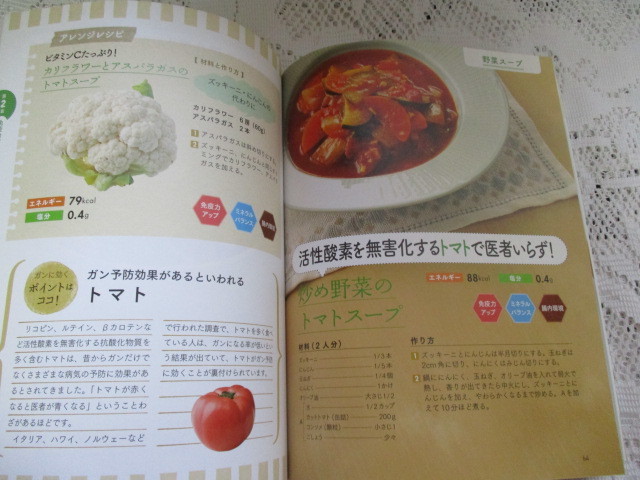 アレンジレシピ
ビタミンCたっぷり!
カリフラワーとアスパラガスの
トマトスープ
【材料と作り方】
ズッキーニ・にんじんの
代わりに
カリフラワー 6房(60g)
アスパラガス 2本
1 アスパラガスは斜め切りにする。
2 ズッキーニ、にんじんの
ガスを加える。
エネルギー 79kcal
塩分 0.4g
免疫力
アップ
ミネラル
バランス
腸内環境
ガンに効く
ポイントは
ココ!
ガン予防効果があるといわれる
トマト
リコピン、ルテイン、βカロテンな
ど活性酸素を無害化する抗酸化物質を
多く含むトマトは、昔からガンだけで
なくさまざまな病気の予防に効果があ
るとされてきました。「トマトが赤く
なると医者が青くなる」ということわ
ざがあるほどです。
イタリア、ハワイ、ノルウェーなど
で行われた調査で、トマトを多く食べ
ている人は、ガンになる率が低いとい
う結果が出ていて、トマトがガン予防
に効くことが裏付けられています。
野菜スープ
活性酸素を無害化するトマトで医者いらず!
炒め野菜の
トマトスープ
エネルギー 88kcal
塩分 0.4g
免疫力
アップ
ミネラル
バランス
腸内環境
材料(2人分)
ズッキーニ 1/3本
にんじん 1/5本
玉ねぎ 1/4個
にんにく 1かけ
オリーブ油 大さじ1/2
A
水 1/2カップ
カットトマト(缶詰) 200g
コンソメ(顆粒) 小さじ1
こしょう 少々
作り方
1 ズッキーニとにんじんは半月切りにする。玉ねぎは
2cm角に切り、にんにくはみじん切りにする。
2 鍋ににんにく、玉ねぎ、オリーブ油を入れて弱火で
熱し、香りが出てきたら中火にし、ズッキーニとに
んじんを加え、やわらかくなるまで炒める。Aを加
えて10分ほど煮る。